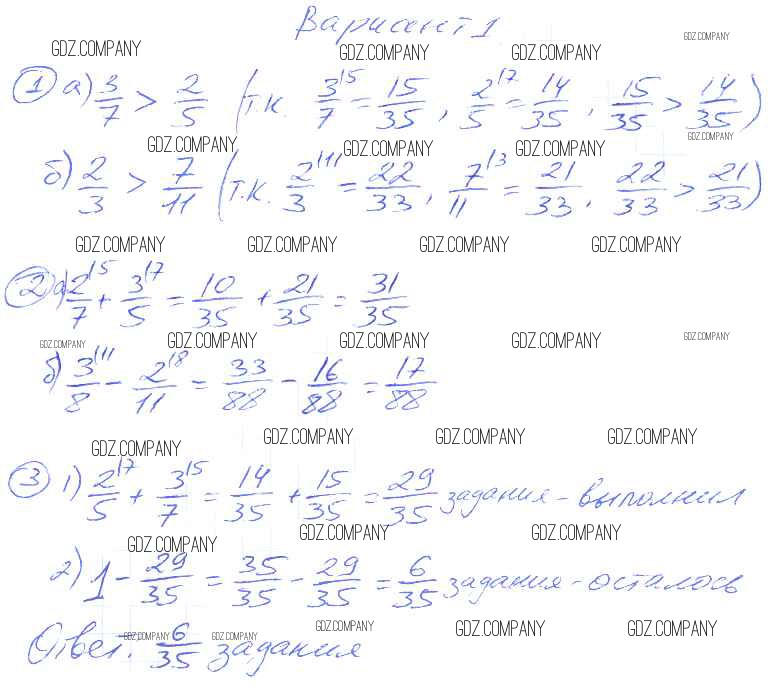 Вариант 1
GDZ.COMPANY GDZ.COMPANY GDZ.COMPANY GDZ.COMPANY
1 а) 3/7 > 2/5 (т.к. 3/7 \5 = 15/35, 2/5 \7 = 14/35, 15/35 > 14/35)
GDZ.COMPANY GDZ.COMPANY GDZ.COMPANY GDZ.COMPANY
б) 2/3 > 7/11 (т.к. 2/3 \11 = 22/33, 7/11 \3 = 21/33, 22/33 > 21/33)
GDZ.COMPANY GDZ.COMPANY GDZ.COMPANY GDZ.COMPANY
2 а) 2/7 \5 + 3/5 \7 = 10/35 + 21/35 = 31/35
GDZ.COMPANY GDZ.COMPANY GDZ.COMPANY GDZ.COMPANY GDZ.COMPANY
б) 3/8 \11 - 2/11 \8 = 33/88 - 16/88 = 17/88
GDZ.COMPANY GDZ.COMPANY GDZ.COMPANY GDZ.COMPANY
3 1) 2/5 \7 + 3/7 \5 = 14/35 + 15/35 = 29/35 задания - выполнил
GDZ.COMPANY GDZ.COMPANY GDZ.COMPANY
2) 1 - 29/35 = 35/35 - 29/35 = 6/35 задания - осталось
GDZ.COMPANY GDZ.COMPANY GDZ.COMPANY GDZ.COMPANY GDZ.COMPANY
Ответ: 6/35 задания